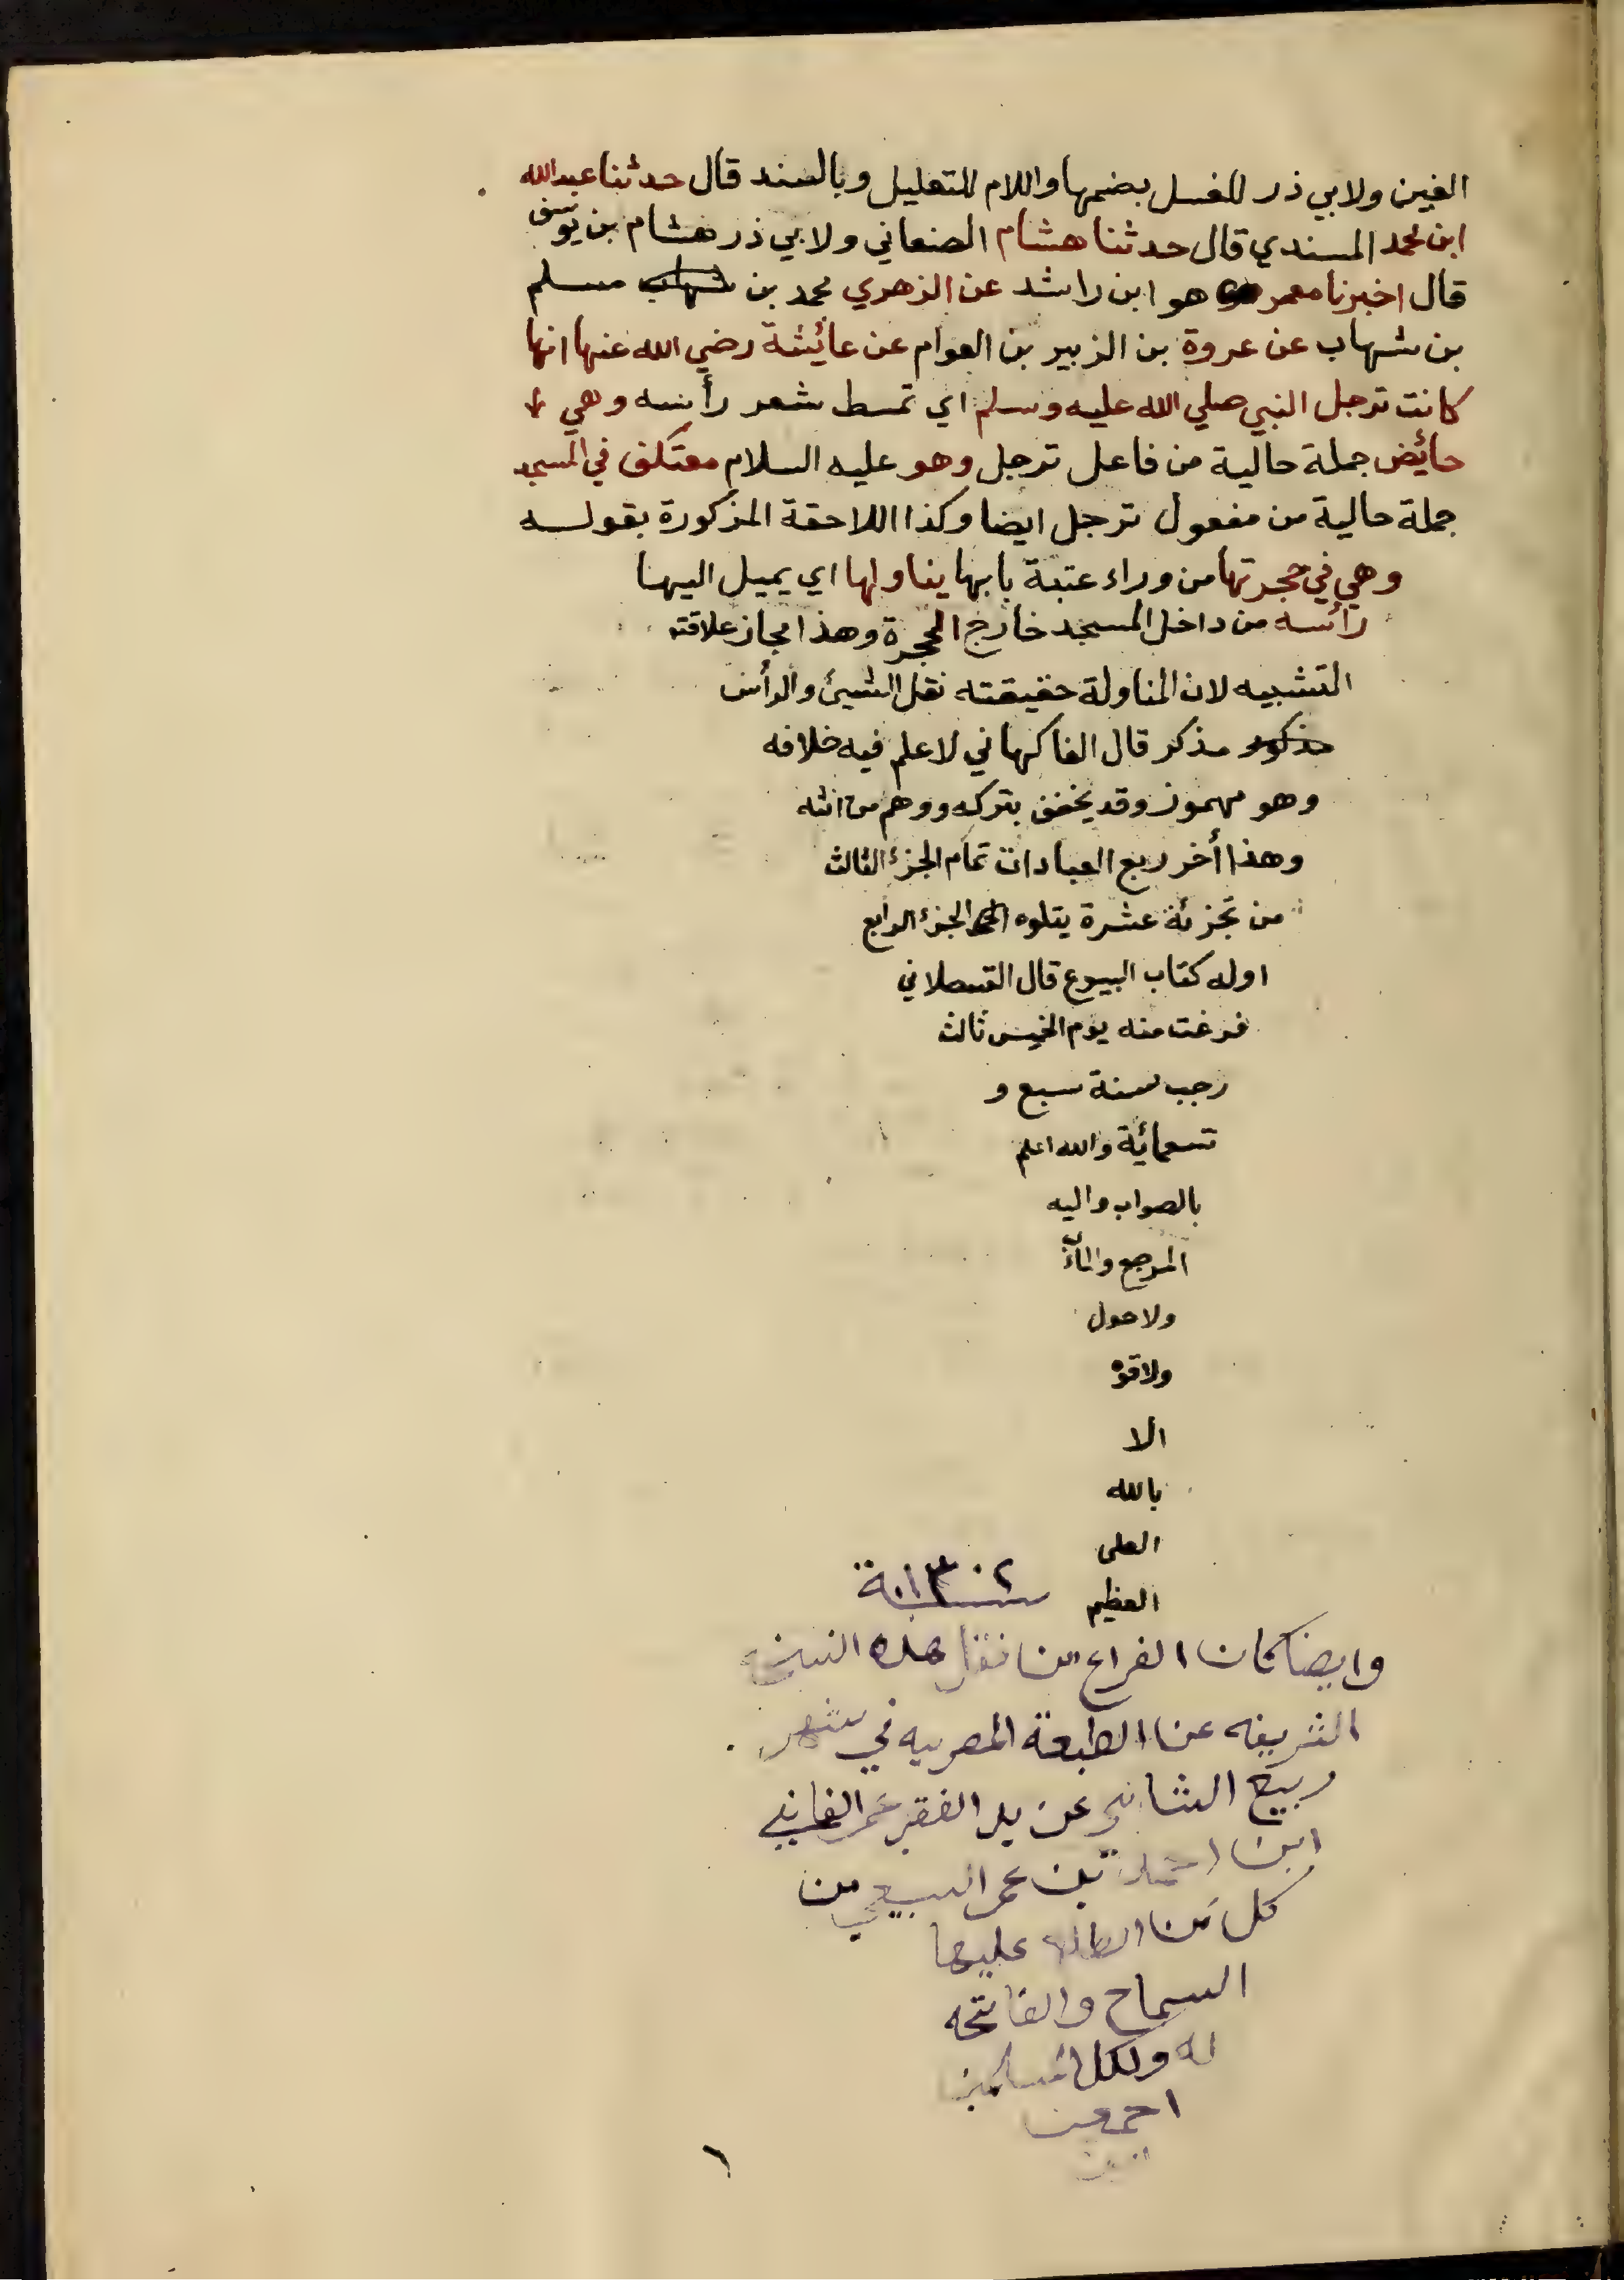 الغين ولابي ذر للغسل بضمها واللام للتعليل وبالسند قال حدثنا عبد الله
ابن محمد المسندي قال حدثنا هشام الصنعاني ولابي ذر هشام بن يوسف
قال اخبرنا معمر هو ابن راشد عن الزهري محمد بن شهاب مسلم
بن شهاب عن عروة بن الزبير بن العوام عن عائيشة رضي الله عنها انها
كانت ترجل النبي صلي الله عليه وسلم اي تمسط شعر رأسه وهي
حائيض جملة حالية من فاعل ترجل وهو عليه السلام معتكف في المسجد
جملة حالية من مفعول ترجل ايضا وكذا اللاحقة المذكورة بقوله
وهي في حجرتها من وراء عتبة بابها يناولها اي يميل اليها
رائسه من داخل المسجد خارج الحجرة وهذا مجاز علاقته
التشبيه لان المناولة حقيقته نقل الشيئ والرأس
مذكور مذكر قال الفاكهاني لا علم فيه خلافه
وهو مهموز وقد يخفف بتركه ووهم من انثه
وهذا أخر ربع العبادات تمام الجزء الثالث
من تجزئة عشرة يتلوه الجزء الرابع
اوله كتاب البيوع قال القسطلاني
فرغت منه يوم الخميس ثالث
رجب سنة سبع و
تسعمائية والله اعلم
بالصواب واليه
المرجع والمآب
ولا حول
ولا قوة
الا
بالله
العلى
العظيم
سنة ١٣٠٢
وايضا كان الفراغ من نقل هذه النسخه
الشريفه عن الطبعة المصريه في شهر
ربيع الثاني عن يد الفقير عمر الفاني
ابن احمد بن عمر من
كل من اطلع عليها
السماح والفاتحه
له ولكل المسلمين
اجمعين